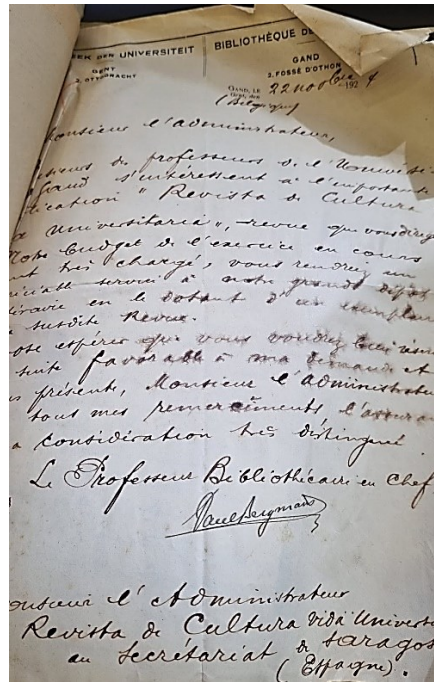 EEK DER UNIVERSITEIT
GENT
2, OTTOGRACHT
BIBLIOTHÈQUE DE
GAND
2, FOSSÉ D'OTHON
GAND, LE
Gent, den
22 novbre 192 4
(Belgique)
onsieur l'administrateur,
professeurs de l'Universi
Gand s'intéressent à l'importante
lication "Revista de Cultura
a Universitaria", revue que vous dirige
Notre budget de l'exercice en cours
nt très chargé, vous rendrez un
service à notre grand dépôt
en le dotant d'un exemplai
susdite Revue.
ose espérer que vous voudrez bien
suite favorable à ma demande et
présente, Monsieur l'administrateu
tous mes remerciments, l'assura
a considération très distinguée.
Le Professeur Bibliothécaire en chef
Paul Bergmans
onsieur l'Administrateur
Revista de Cultura vida Universi
au Secrétariat de Saragos
(Espagne).